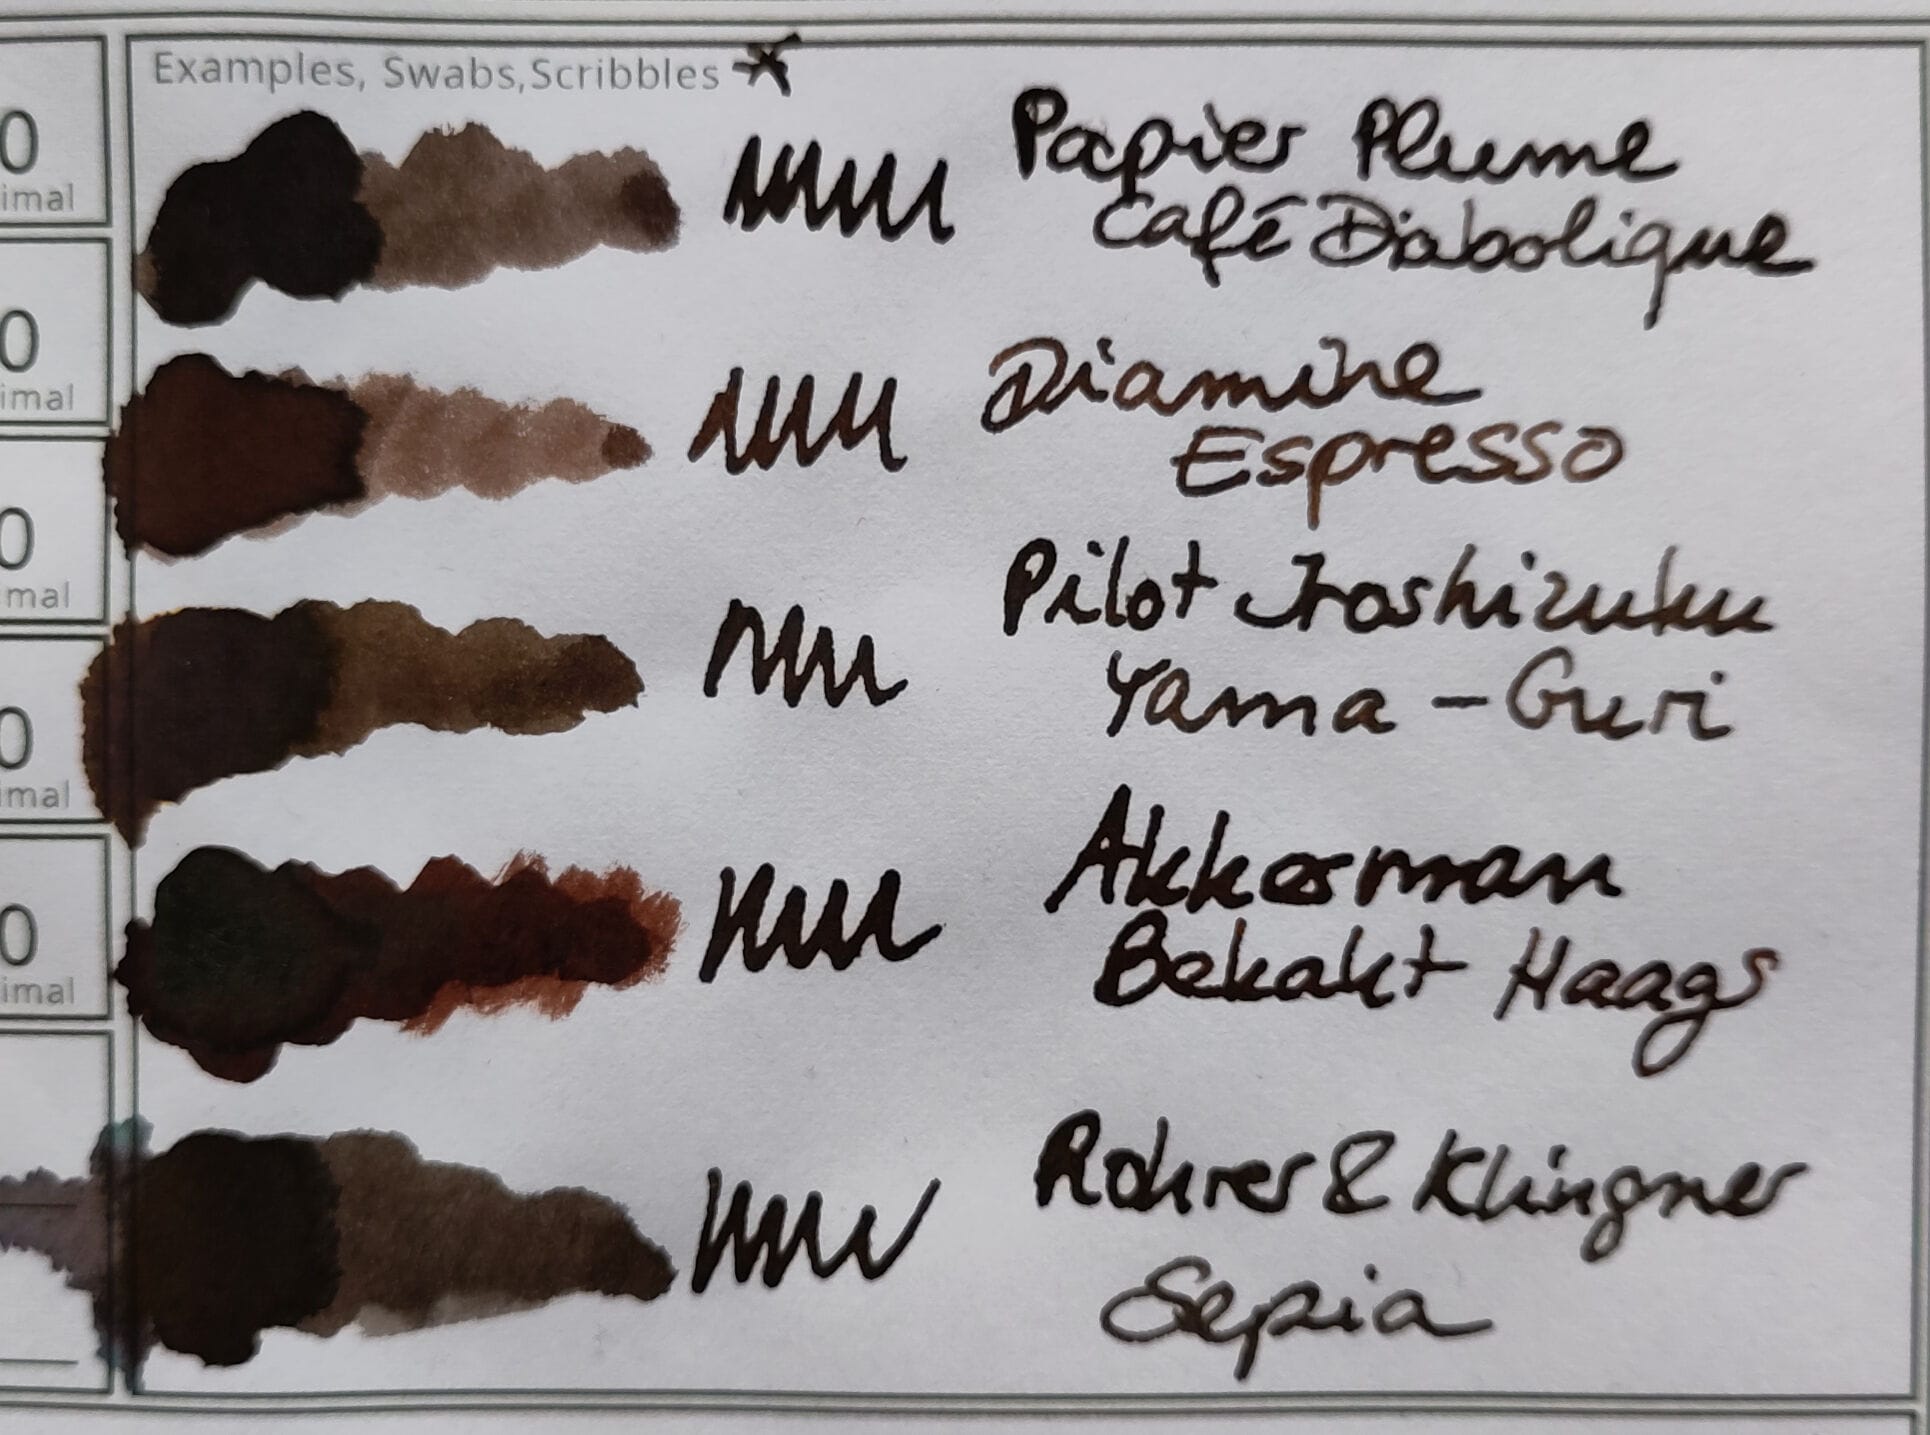 Examples, Swabs, Scribbles *
0
imal
Papier Plume
Café Diabolique
0
imal
Diamine
Espresso
0
mal
Pilot Iroshizuku
Yama-Guri
0
imal
Akkerman
Bekakt Haags
0
imal
Rohrer & Klingner
Sepia